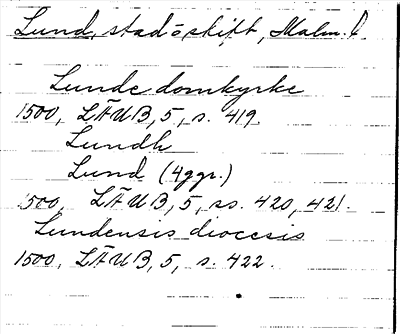 Lund, stad o skift, Malm. l
Lunde domkyrke
1500, LÄUB, 5, s. 419.
Lundh
Lund (4ggr.)
1500, LÄUB, 5, ss. 420, 421.
Lundensis diocesis
1500, LÄUB, 5, s. 422.